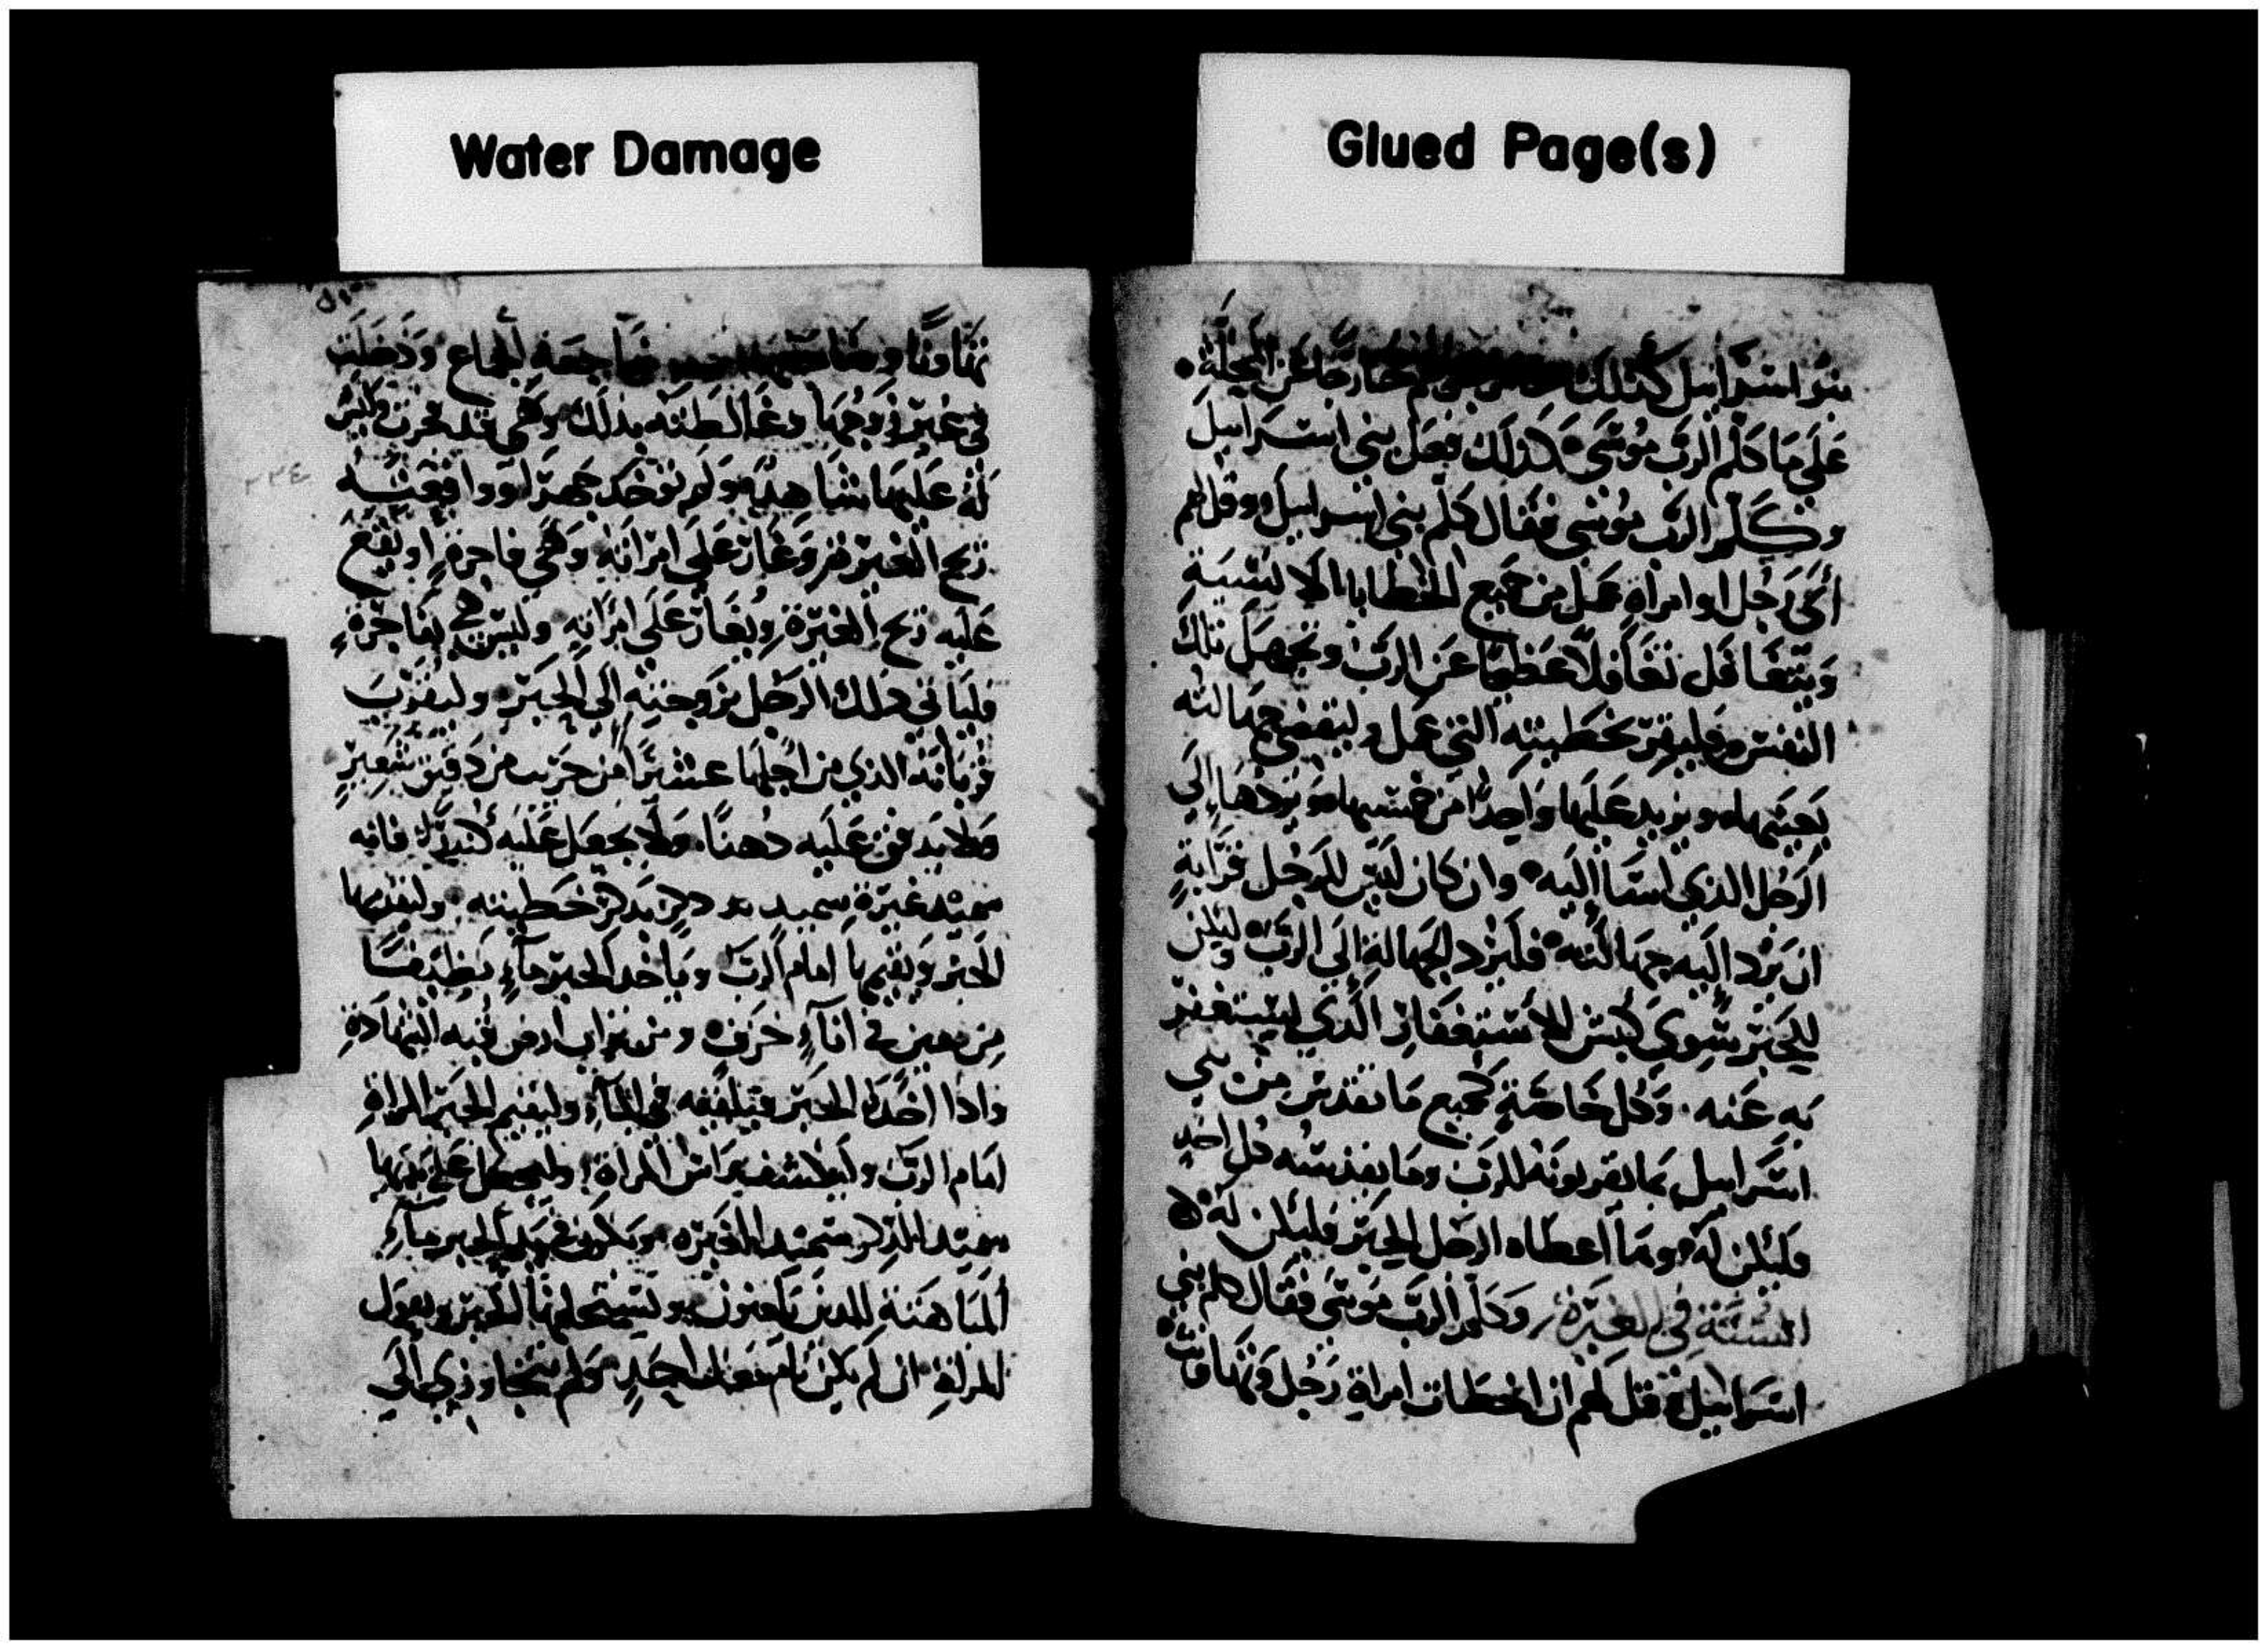 Water Damage
Glued Page(s)
بنو اسرايل كذلك خارجًا عن المحلة
علي ما كلم الرب موسي كذلك فعل بني اسرايل
وكلم الرب موسي فقال كلم بني اسرايل وقل لهم
أي رجل او امراة عمل من جميع الخطايا الانسية
ويتغافل تغافلًا عظيمًا عن الرب وتجهل تلك
النفس فليقر بخطيته التي عمل وليقضي جهالته
بعينها ويزيد عليها واحدًا من خمسها ويردها إلي
الرجل الذي اسا إليه وان كان ليس للرجل قرابة
ان يرد اليه جهالته فليرد الجهالة إلي الرب وليكن
للحبر سوي كبش الاستغفار الذي ليستغفر
به عنه وكل خاصة لجميع ما تقدس من بني
اسرايل مما يقربونه للرب وما يقدسه كل احد
فليكن له وما اعطاه الرجل الحبر فليكن له
السنة في الغيرة وكلم الرب موسي فقال كلم بني
اسرايل قل لهم ان اخطات امراة رجل وتهاونت
تهاونًا مضاجعة الجماع ودخلت
في غير زوجها وغالطته بذلك وهي قد فجرت وليس
له عليها شاهد ولم توخد جهرًا ووافقته
ريح الغيرة وغار علي امراته وهي فاجرة او يقع
عليه ريح الغيرة ويغار علي امراته وليس هي بفاجرة
فلياتي ذلك الرجل بزوجته إلي الحبر وليقرب
قربانه الذي من اجلها عشرًا من جريب من دقيق شعير
ولا يدفق عليه دهنًا ولا يجعل عليه كندرًا فانه
سميد غيرة سميد ذكر يذكر خطيته وليقدمها
الحبر ويقيمها امام الرب وياخد الحبر مآء نظيفًا
من معين في انآء خزف ومن تراب ارض قبه الشهادة
واذا اخد الحبر فيلقيه في المآء وليقيم الحبر المراة
امام الرب وليكشف راس المراة وليجعل علي يديها
سميد الذكر سميد الغيرة ويكون في يد الحبر مآء
للذين يلعنون وليستحلفها الحبر ويقول
للمراة ان لم يكن نام معك احد ولم تتجاوزي إلي